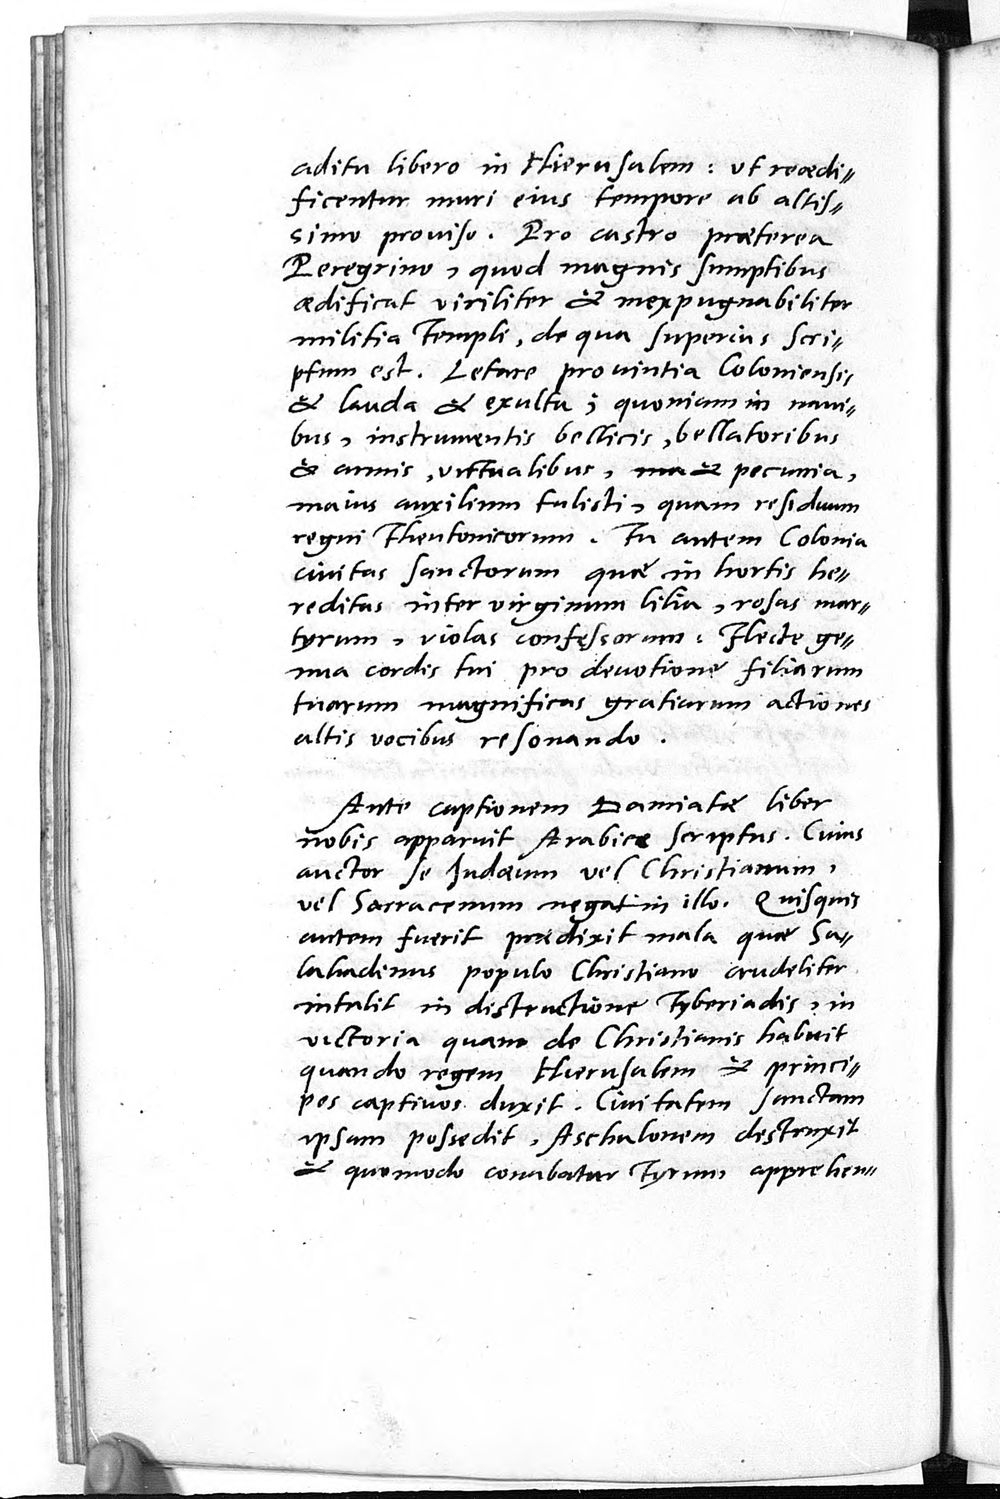 aditu libero in Hierusalem : ut reædi⸗
ficentur muri eius tempore ab altis⸗
simo proviso . Pro castro præterea
Peregrino , quod magnis sumptibus
ædificat viriliter & inexpugnabiliter
militia Templi , de qua superius scri⸗
ptum est . Letare provintia Coloniensis
& lauda & exulta ; quoniam in navi⸗
bus , instrumentis bellicis , bellatoribus
& armis , victualibus , & pecunia ,
maius auxilium tulisti , quam residuum
regni Theutonicorum . Tu autem Colonia
civitas Sanctorum quæ in hortis he⸗
reditas inter virginum lilia , rosas mar⸗
tyrum , violas confessorum : Flecte ge⸗
nua cordis tui pro devotione filiarum
tuarum magnificas gratiarum actiones
altis vocibus resonando .
Ante captionem Damiatæ liber
nobis apparuit Arabice scriptus . Cuius
auctor se Judæum vel Christianum ,
vel Sarracenum negat in illo . Quisquis
autem fuerit prædixit mala quæ Sa⸗
lahadinus populo Christiano crudeliter
intulit in distructione Tyberiadis , in
victoria quam de Christianis habuit
quando regem Hierusalem & princi⸗
pes captivos duxit . Civitatem sanctam
ipsam possedit , Aschalonem destruxit
& quomodo conabatur Tyrum apprehen⸗